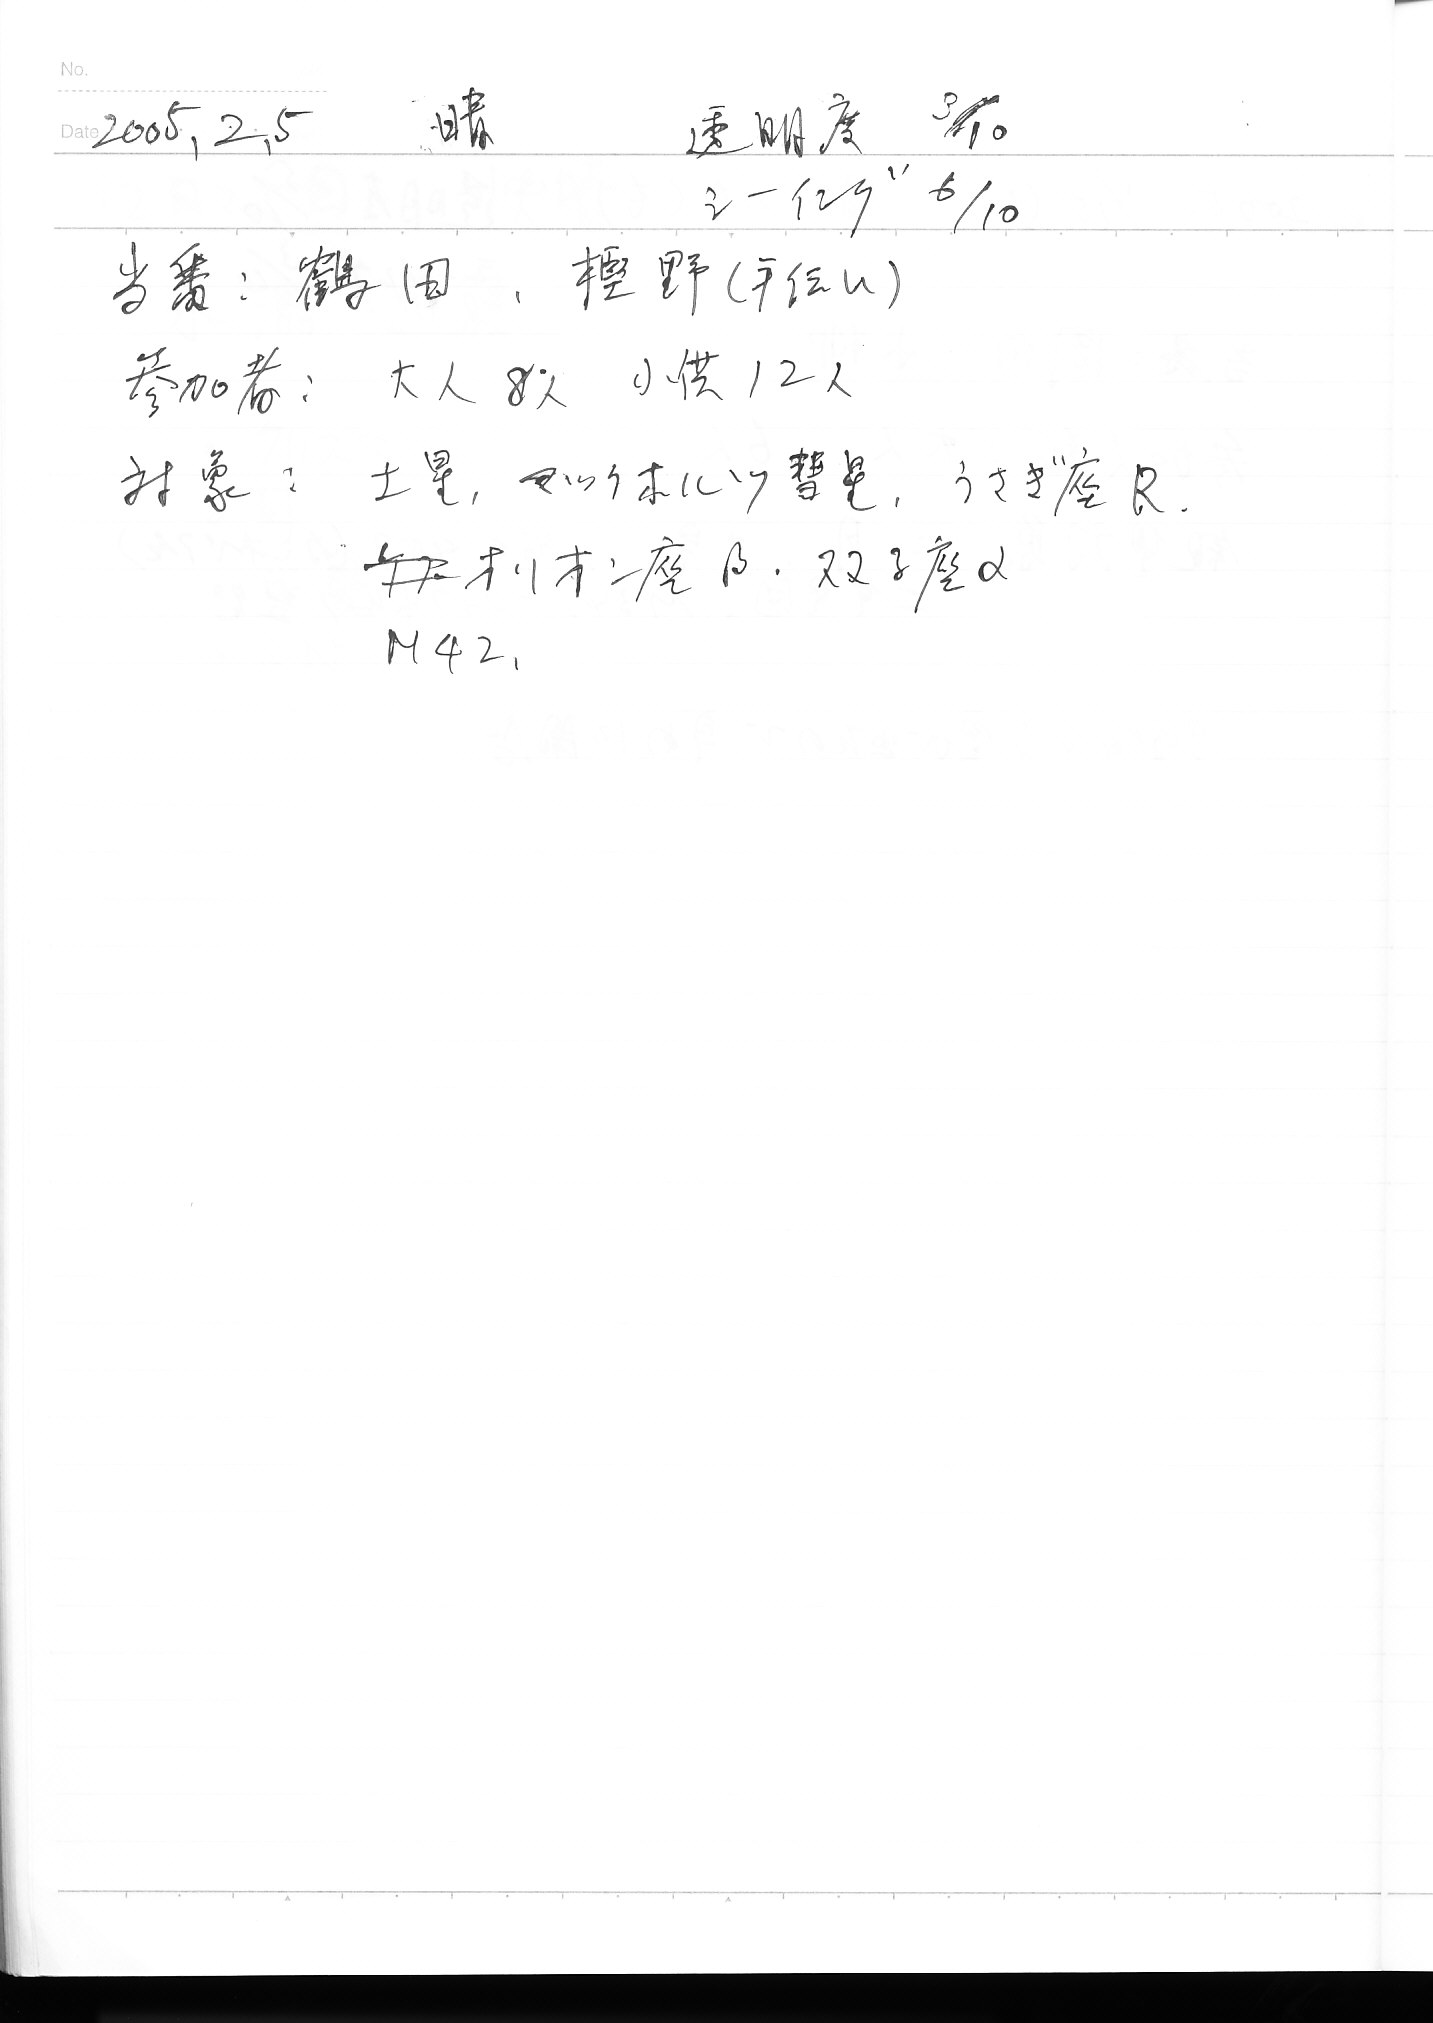 No.
Date 2005, 2, 5 晴 透明度 3/10
シーイング 6/10
当番: 鶴田, 樫野(手伝い)
参加者: 大人 8人 小供 12人
対象: 土星, マックホルツ彗星, うさぎ座R.
オリオン座β. 双子座α
M42,